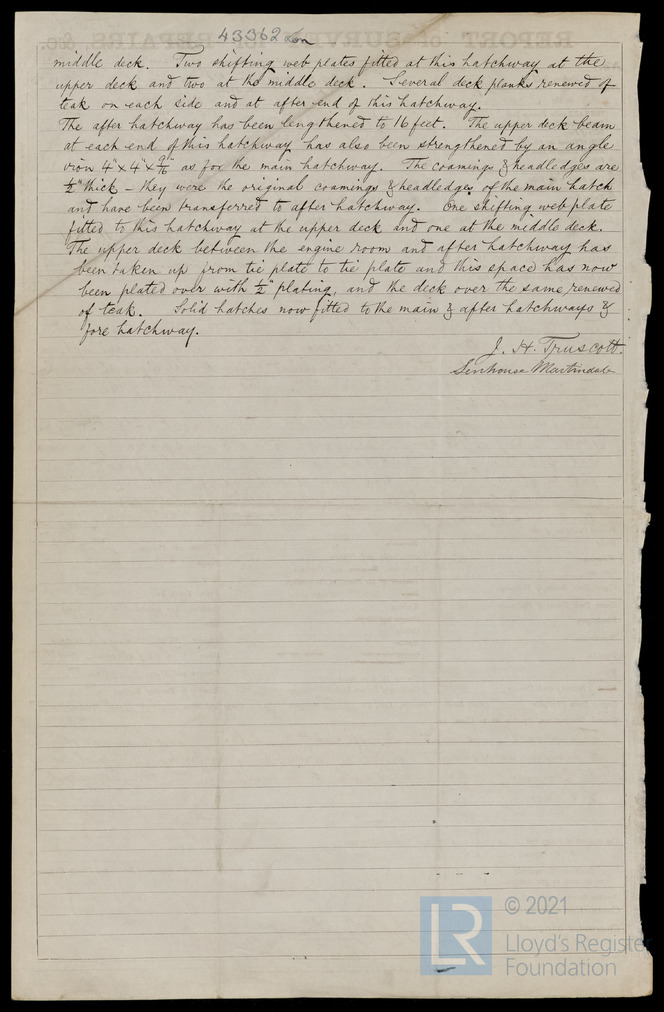 43362 Lon
middle deck. Two shifting web plates fitted at this hatchway at the
upper deck and two at the middle deck. Several deck planks renewed of
teak on each side and at after end of this hatchway.
The after hatchway has been lengthened to 16 feet. The upper deck beam
at each end of this hatchway has also been strengthened by an angle
iron 4" x 4" x 9/16 as for the main hatchway. The coamings & headledges are
1/2" thick - they were the original coamings & headledges of the main hatch
and have been transferred to after hatchway. One shifting web plate
fitted to this hatchway at the upper deck and one at the middle deck.
The upper deck between the engine room and after hatchway has
been taken up from tie plate to tie plate and this space has now
been plated over with 1/2" plating, and the deck over the same renewed
of teak. Solid hatches now fitted to the main & after hatchways &
fore hatchway.
J. H. Truscott.
Senhouse Martindale
© 2021
LR
Lloyd's Register
Foundation